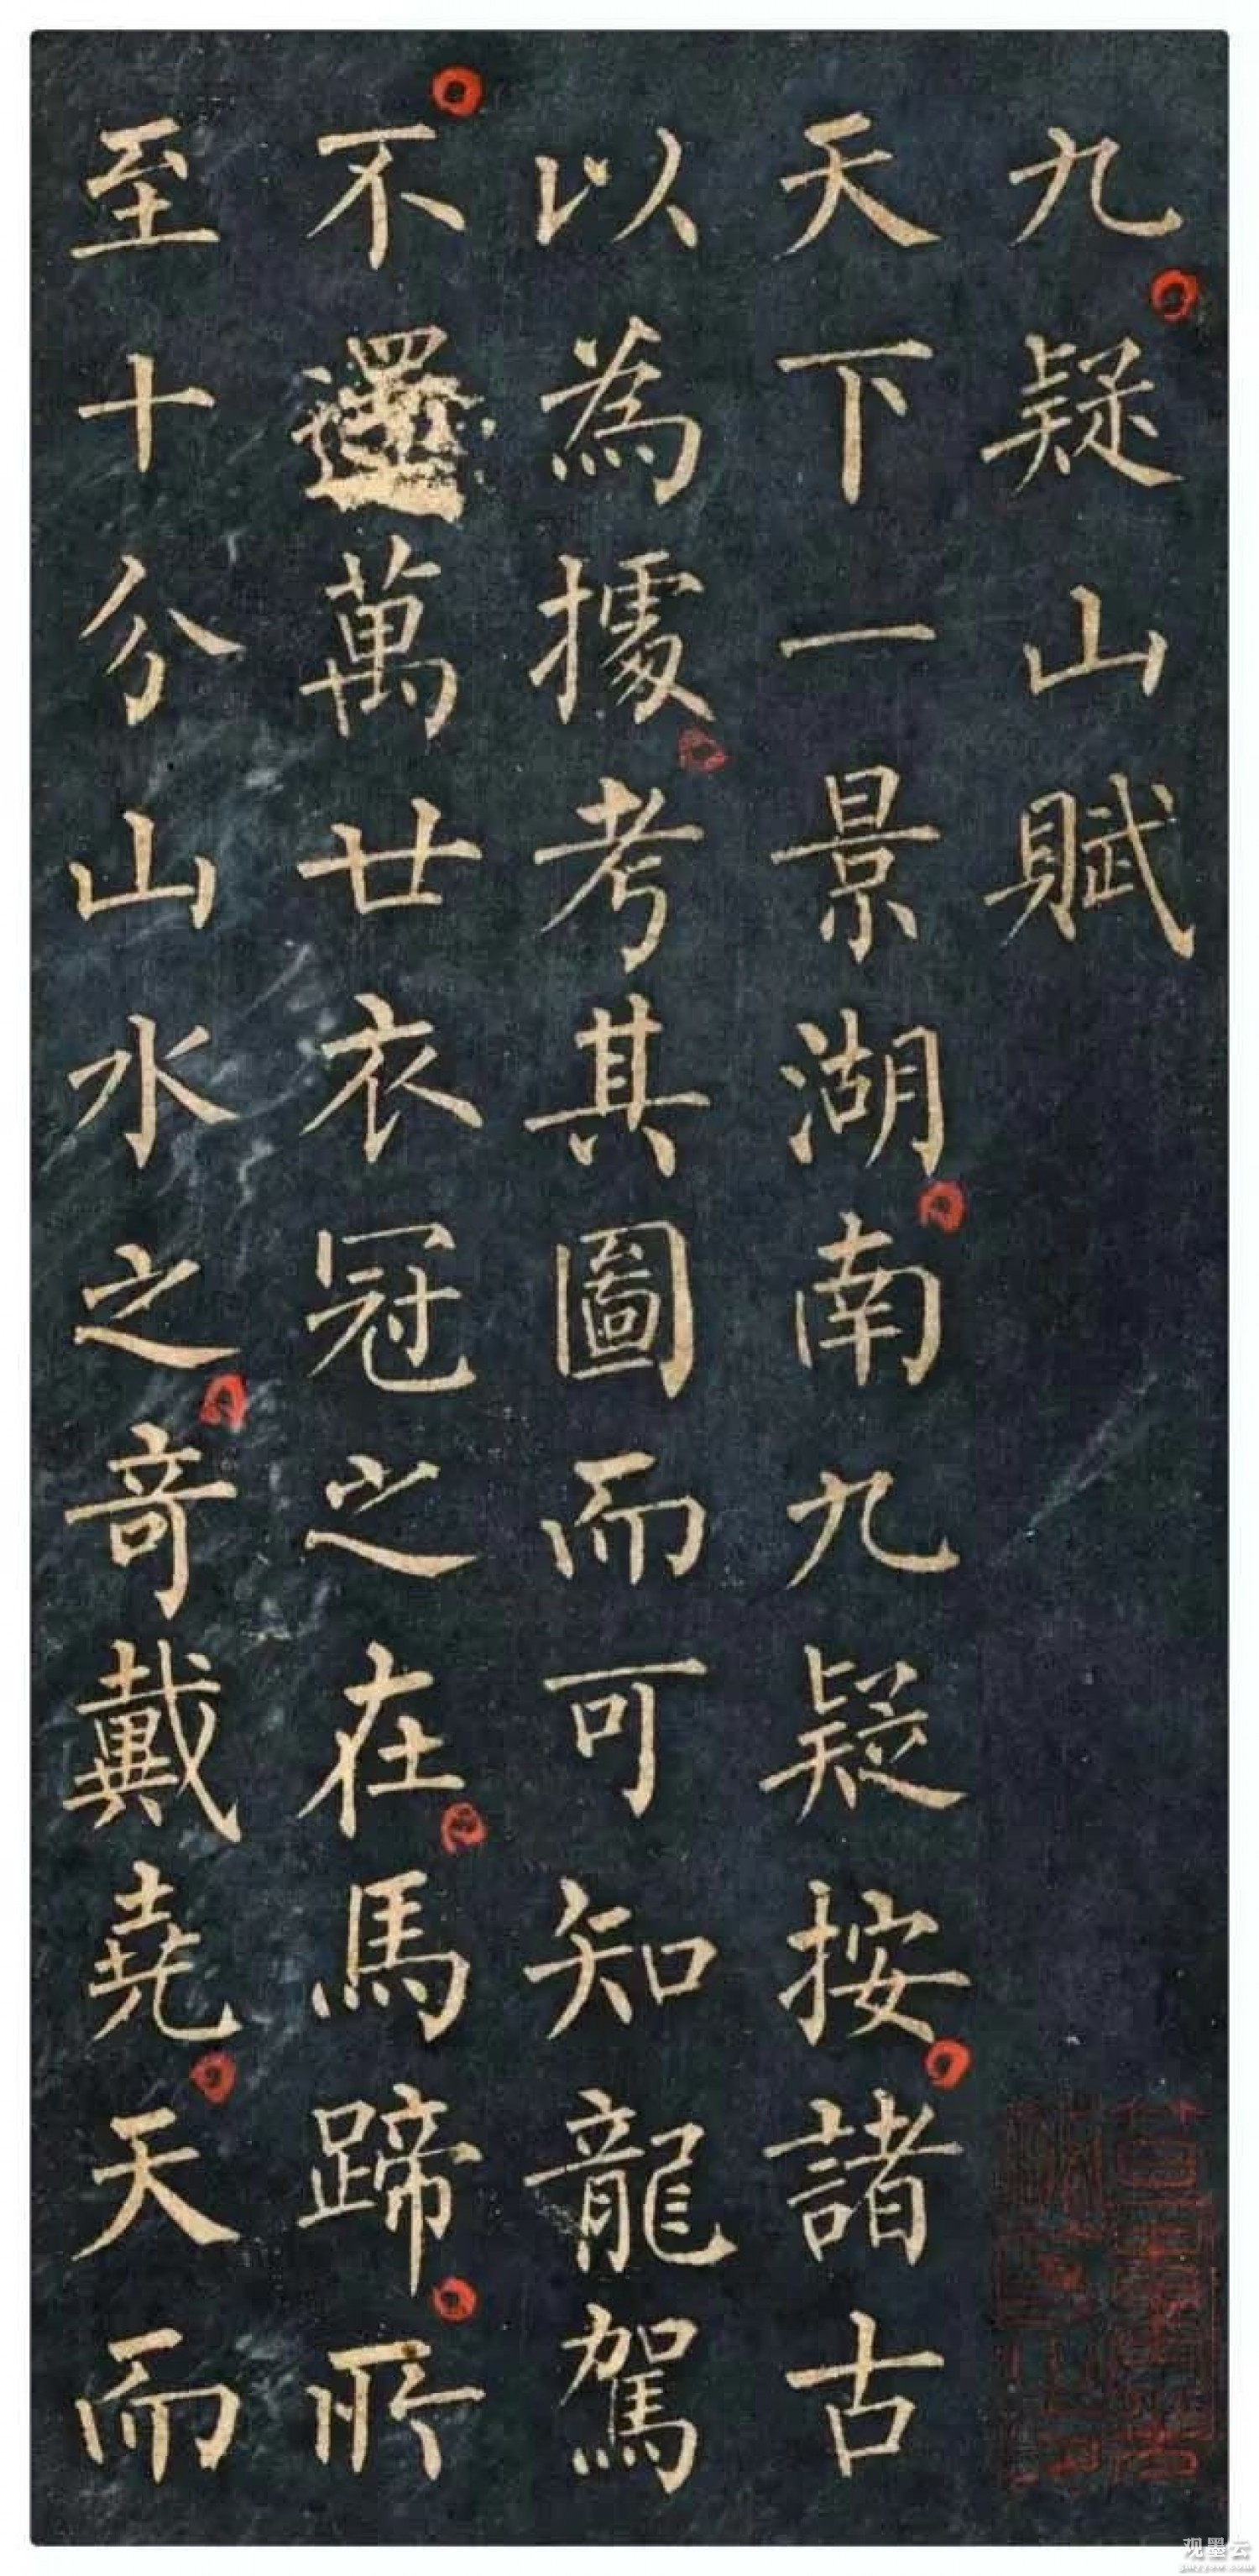 九疑山賦
天下一景湖南九疑按諸古
以為據考其圖而可知龍駕
不還萬廿衣冠之在馬蹄所
至十分山水之奇戴堯天而
观墨云